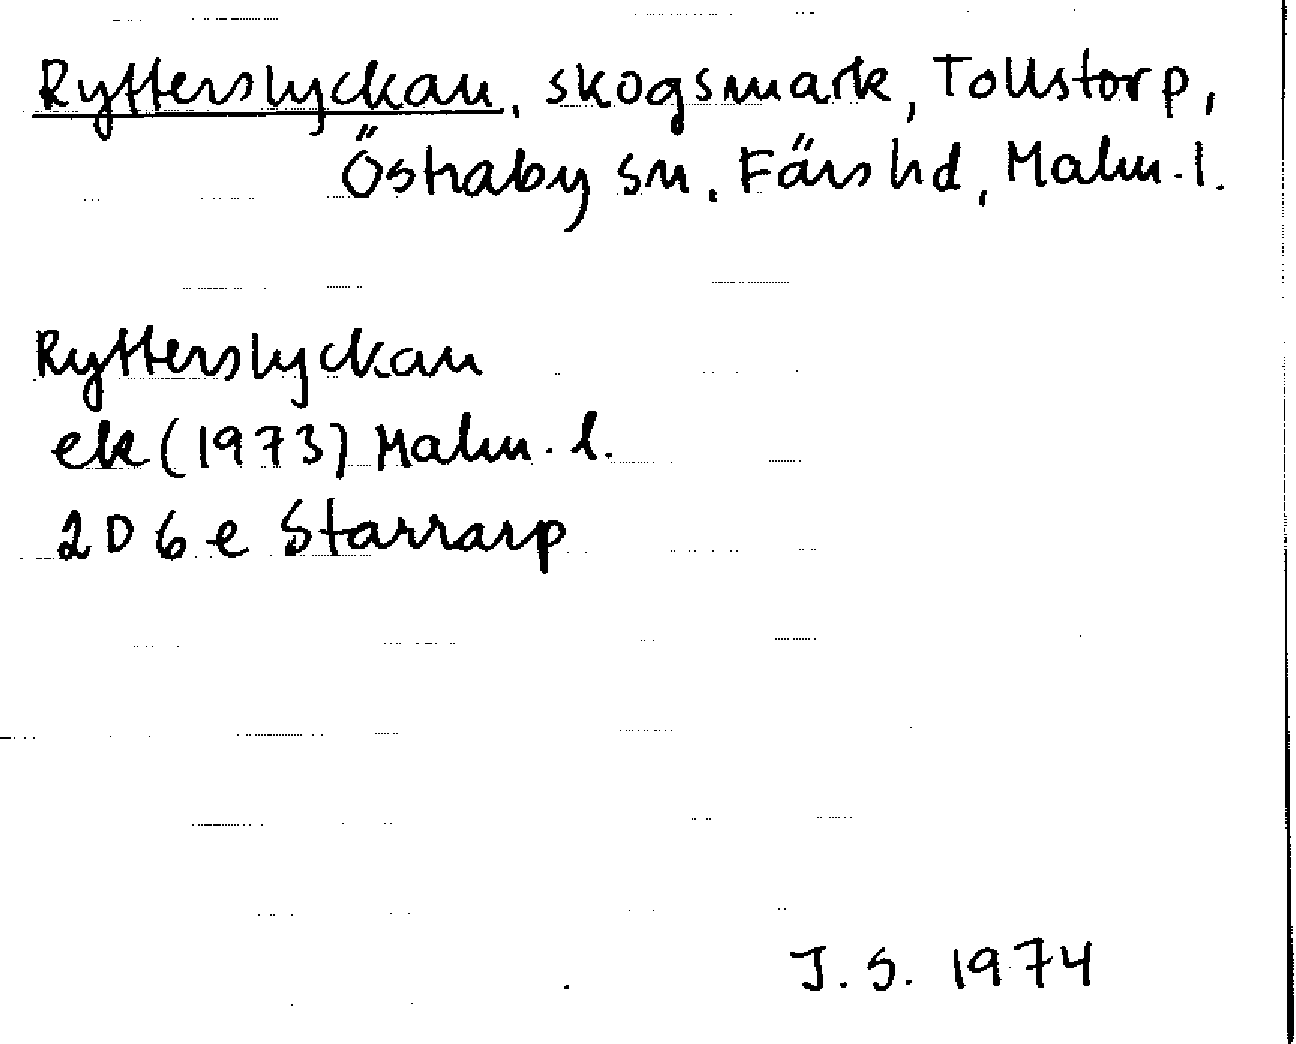 Rytterslyckan, skogsmark, Tollstorp,
Östraby sn. Färs hd, Malm.l.
Rytterslyckan
ek (1973) Malm. l.
2D 6e Starrarp
J.S. 1974